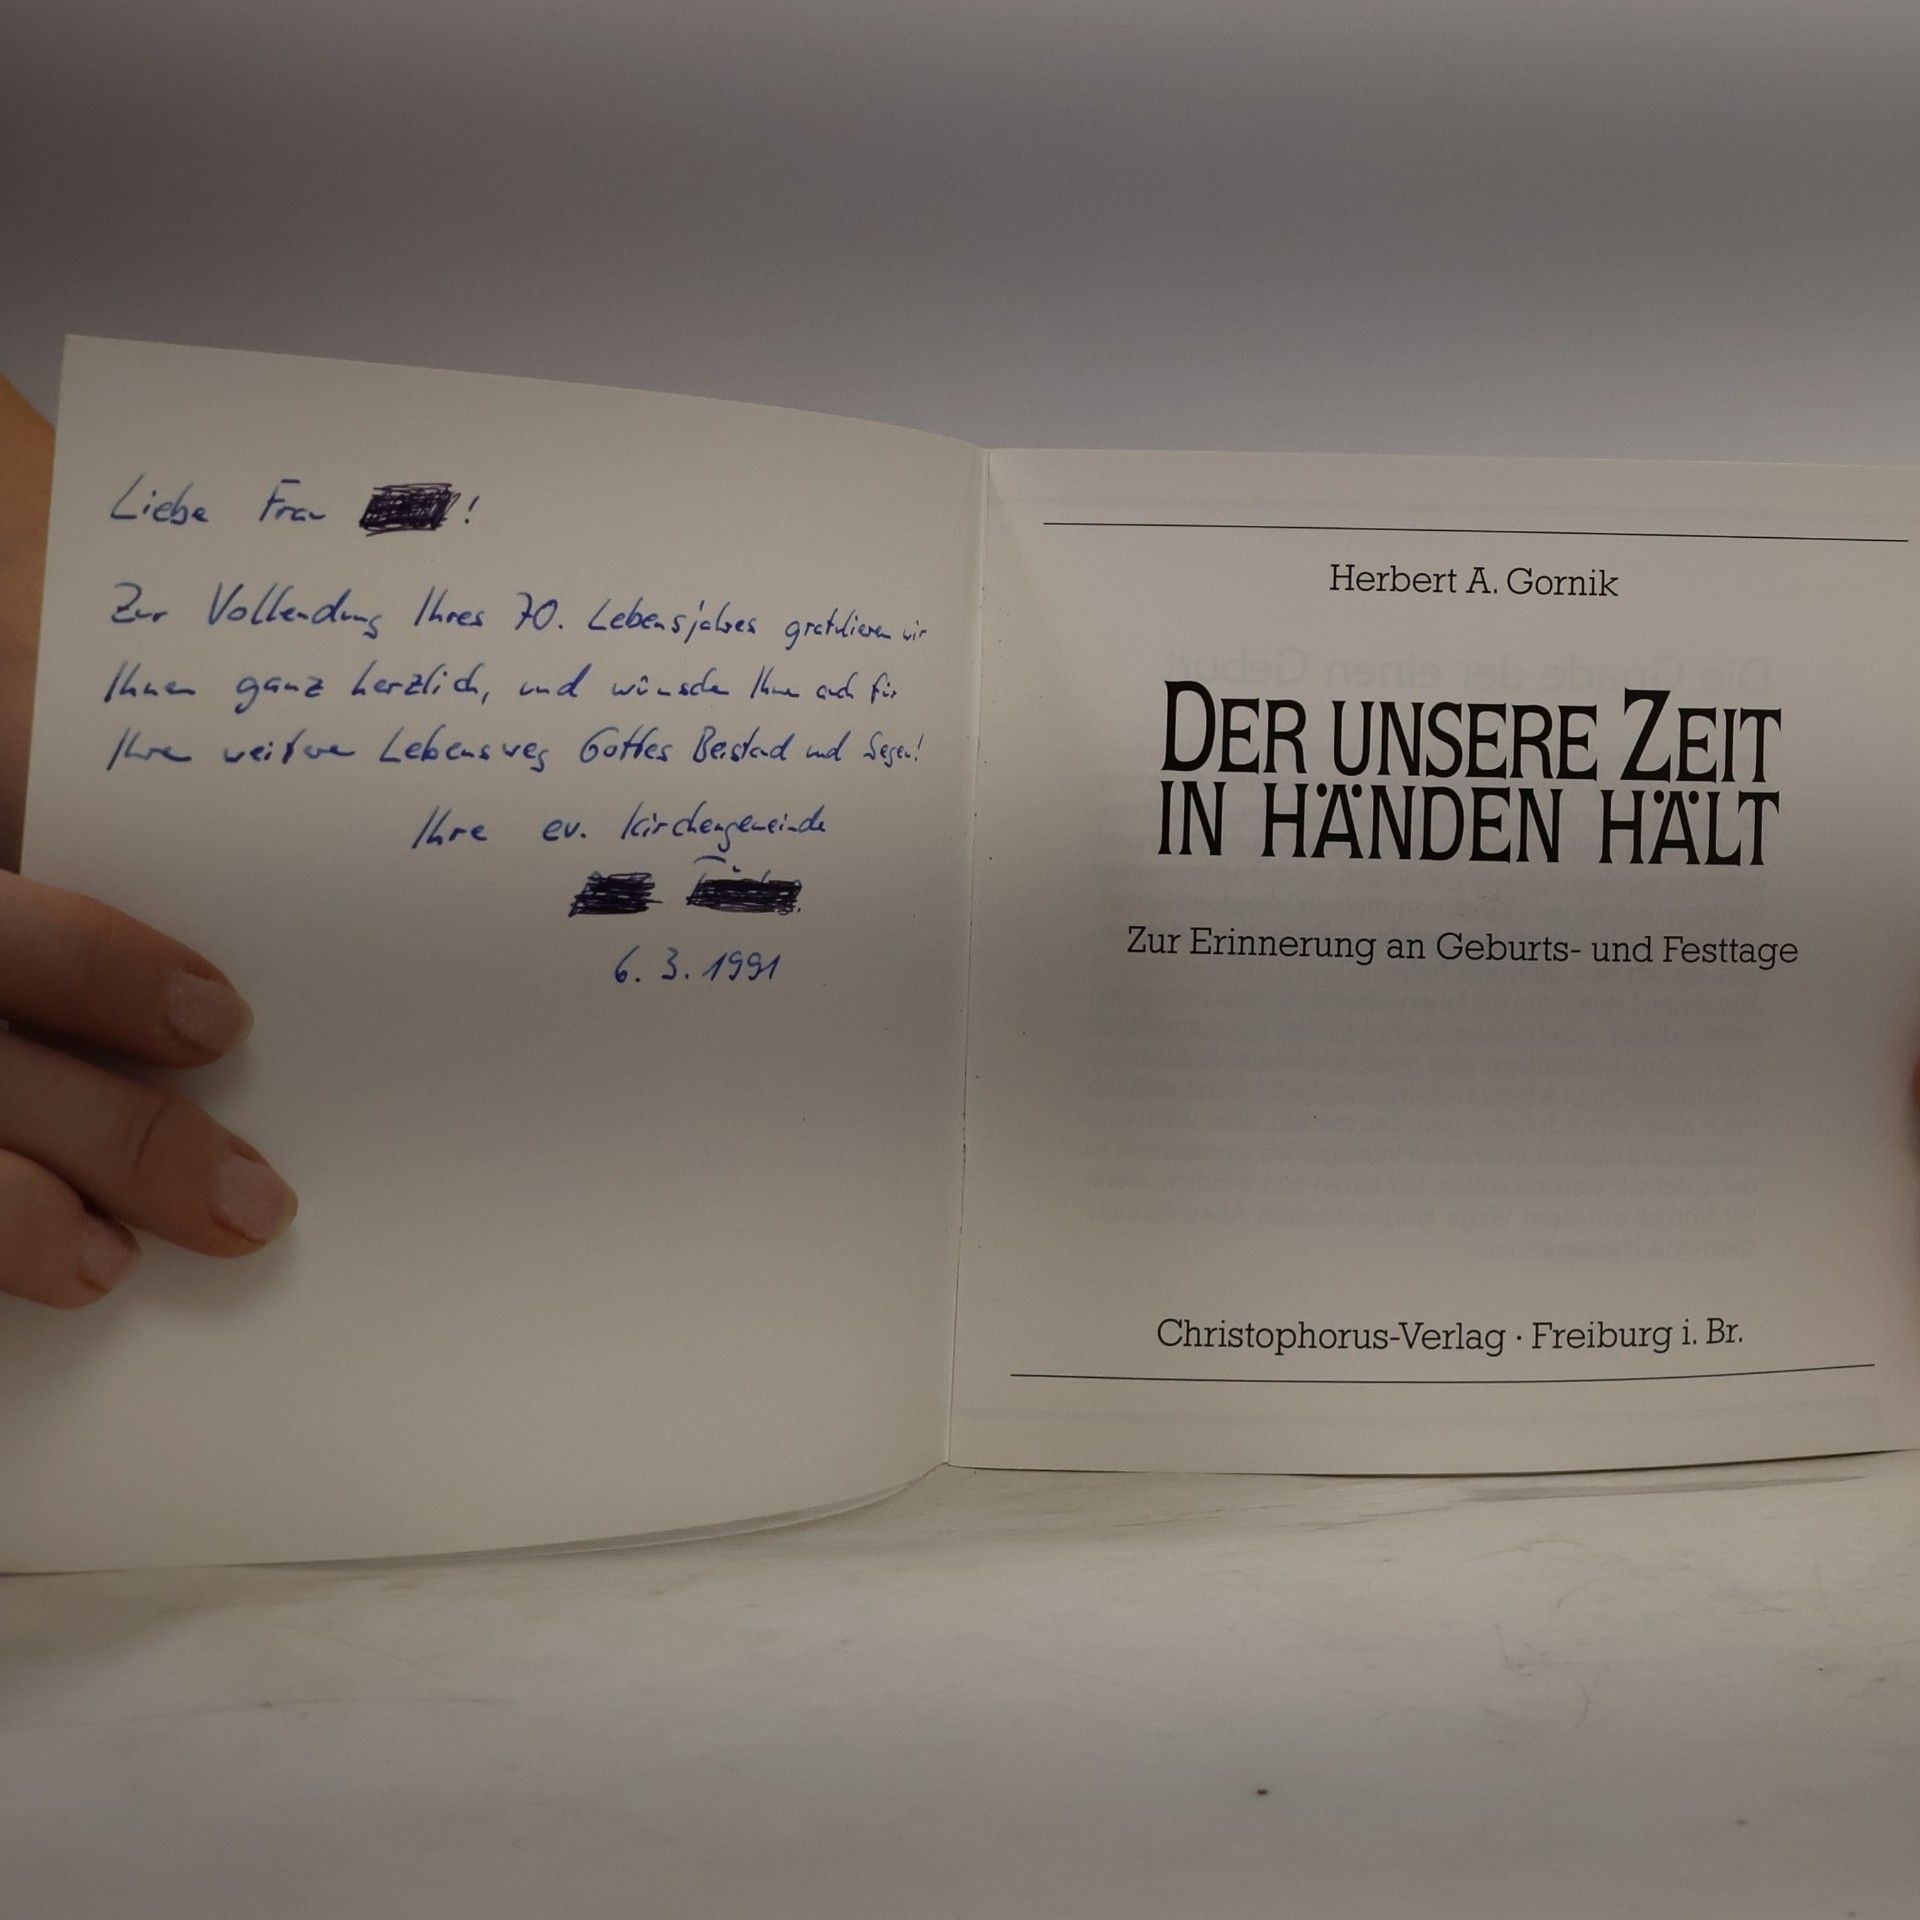 Liebe Frau !
Zur Vollendung Ihres 70. Lebensjahres gratulieren wir
Ihnen ganz herzlich, und wünschen Ihnen auch für
Ihren weiteren Lebensweg Gottes Beistand und Segen!
Ihre ev. Kirchengemeinde
6. 3. 1991
Herbert A. Gornik
DER UNSERE ZEIT
IN HÄNDEN HÄLT
Zur Erinnerung an Geburts- und Festtage
Christophorus-Verlag · Freiburg i. Br.